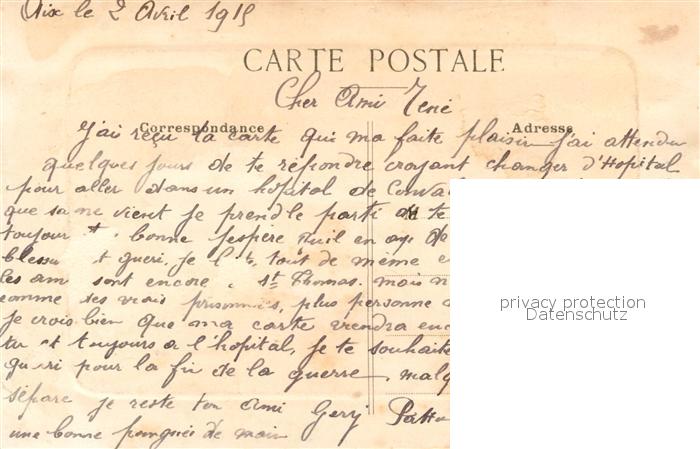 Aix le 2 Avril 1915
CARTE POSTALE
Cher Ami René
Correspondance
Adresse
J'ai reçu ta carte qui ma faite plaisir j'ai attendu
quelques jours de te répondre croyant changer d'Hopital
pour aller dans un hopital de Conva
que sa ne vient je prend le parti de te
toujour bonne j'espère quil en ai de
bless t gueri, je tout de même
les am sont encore St Thomas. mais n
comme des vrais prisonniés, plus personne
je crois bien que ma carte viendra enc
tu et toujours a l'hopital, je te souhaite
guéri pour la fin de la guerre, malg
sépare je reste ton Ami Gery
une bonne poignée de main
privacy protection
Datenschutz